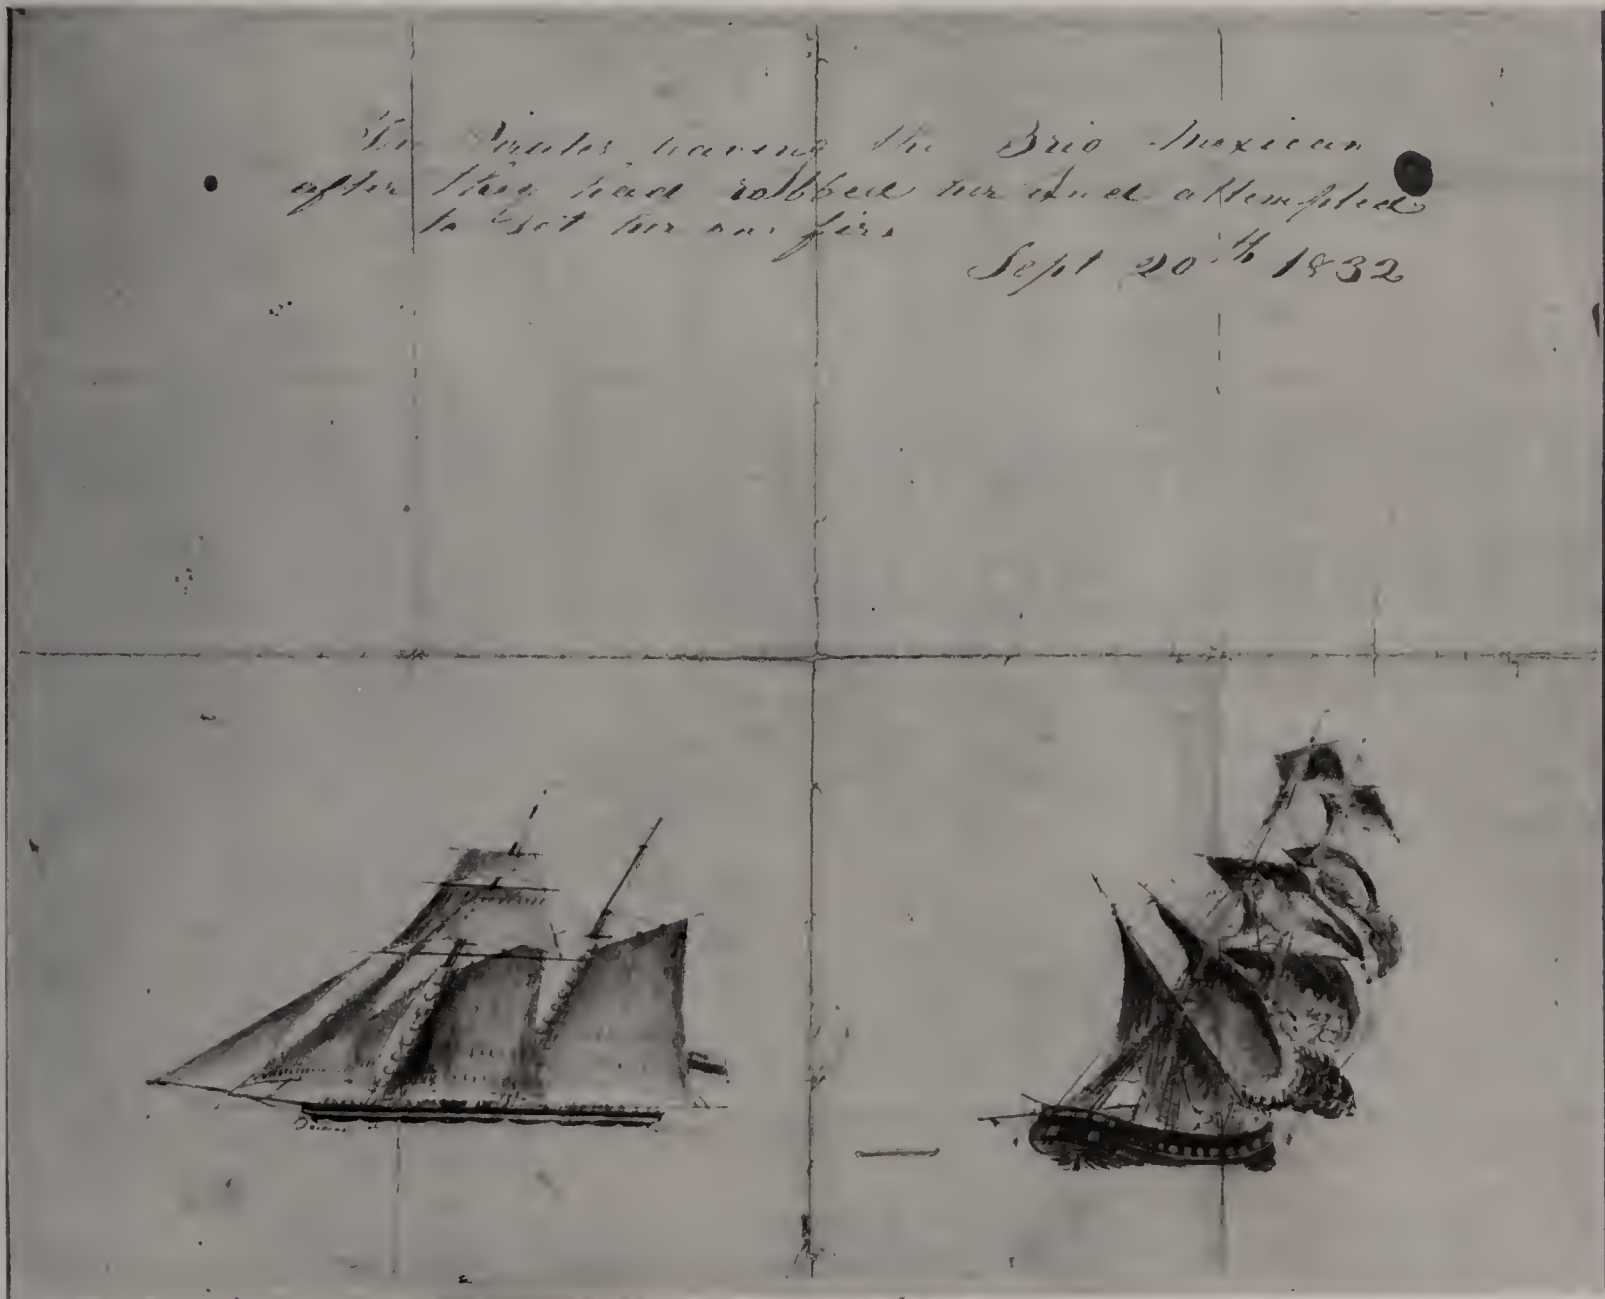 The Pirates leaving the Brig Mexican
after they had robbed her and attempted
to set her on fire
Sept 20th 1832